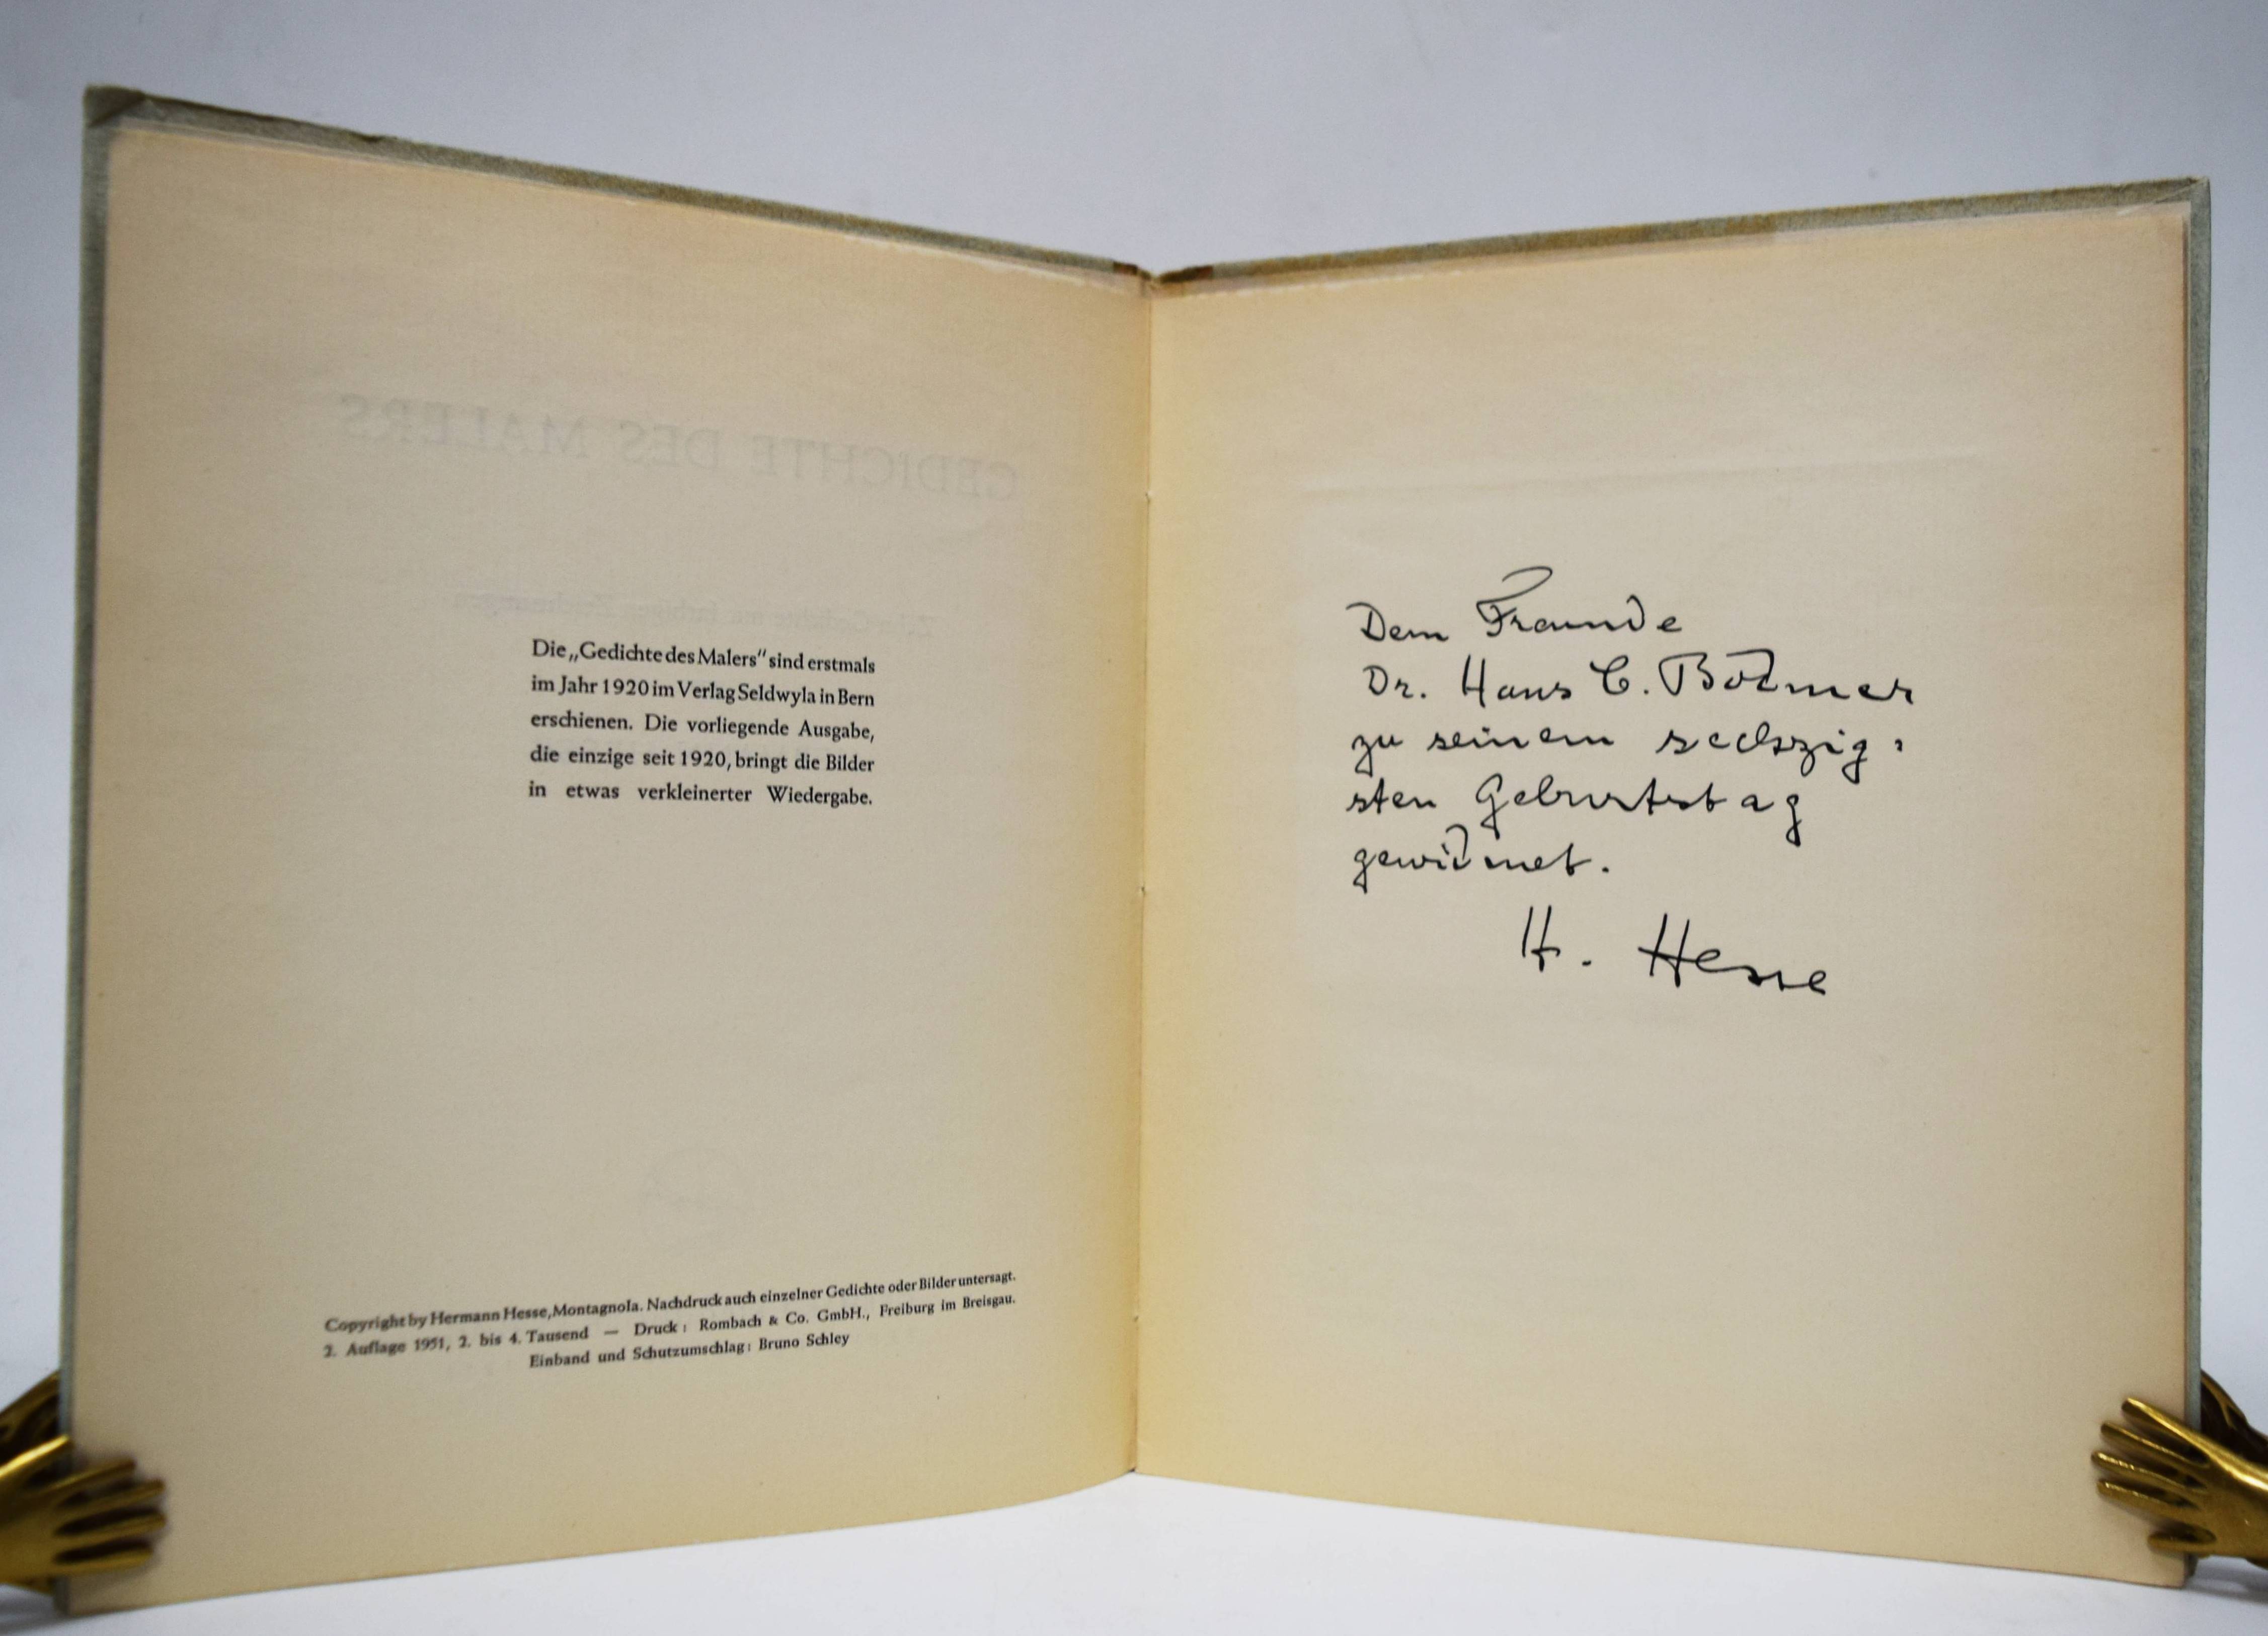 GEDICHTE DES MALERS
Die „Gedichte des Malers" sind erstmals
im Jahr 1920 im Verlag Seldwyla in Bern
erschienen. Die vorliegende Ausgabe,
die einzige seit 1920, bringt die Bilder
in etwas verkleinerter Wiedergabe.
Copyright by Hermann Hesse, Montagnola. Nachdruck auch einzelner Gedichte oder Bilder untersagt.
2. Auflage 1951, 2. bis 4. Tausend — Druck: Rombach & Co. GmbH., Freiburg im Breisgau.
Einband und Schutzumschlag: Bruno Schley
Dem Freunde
Dr. Hans C. Bodmer
zu seinem sechszig-
sten Geburtstag
gewidmet.
H. Hesse